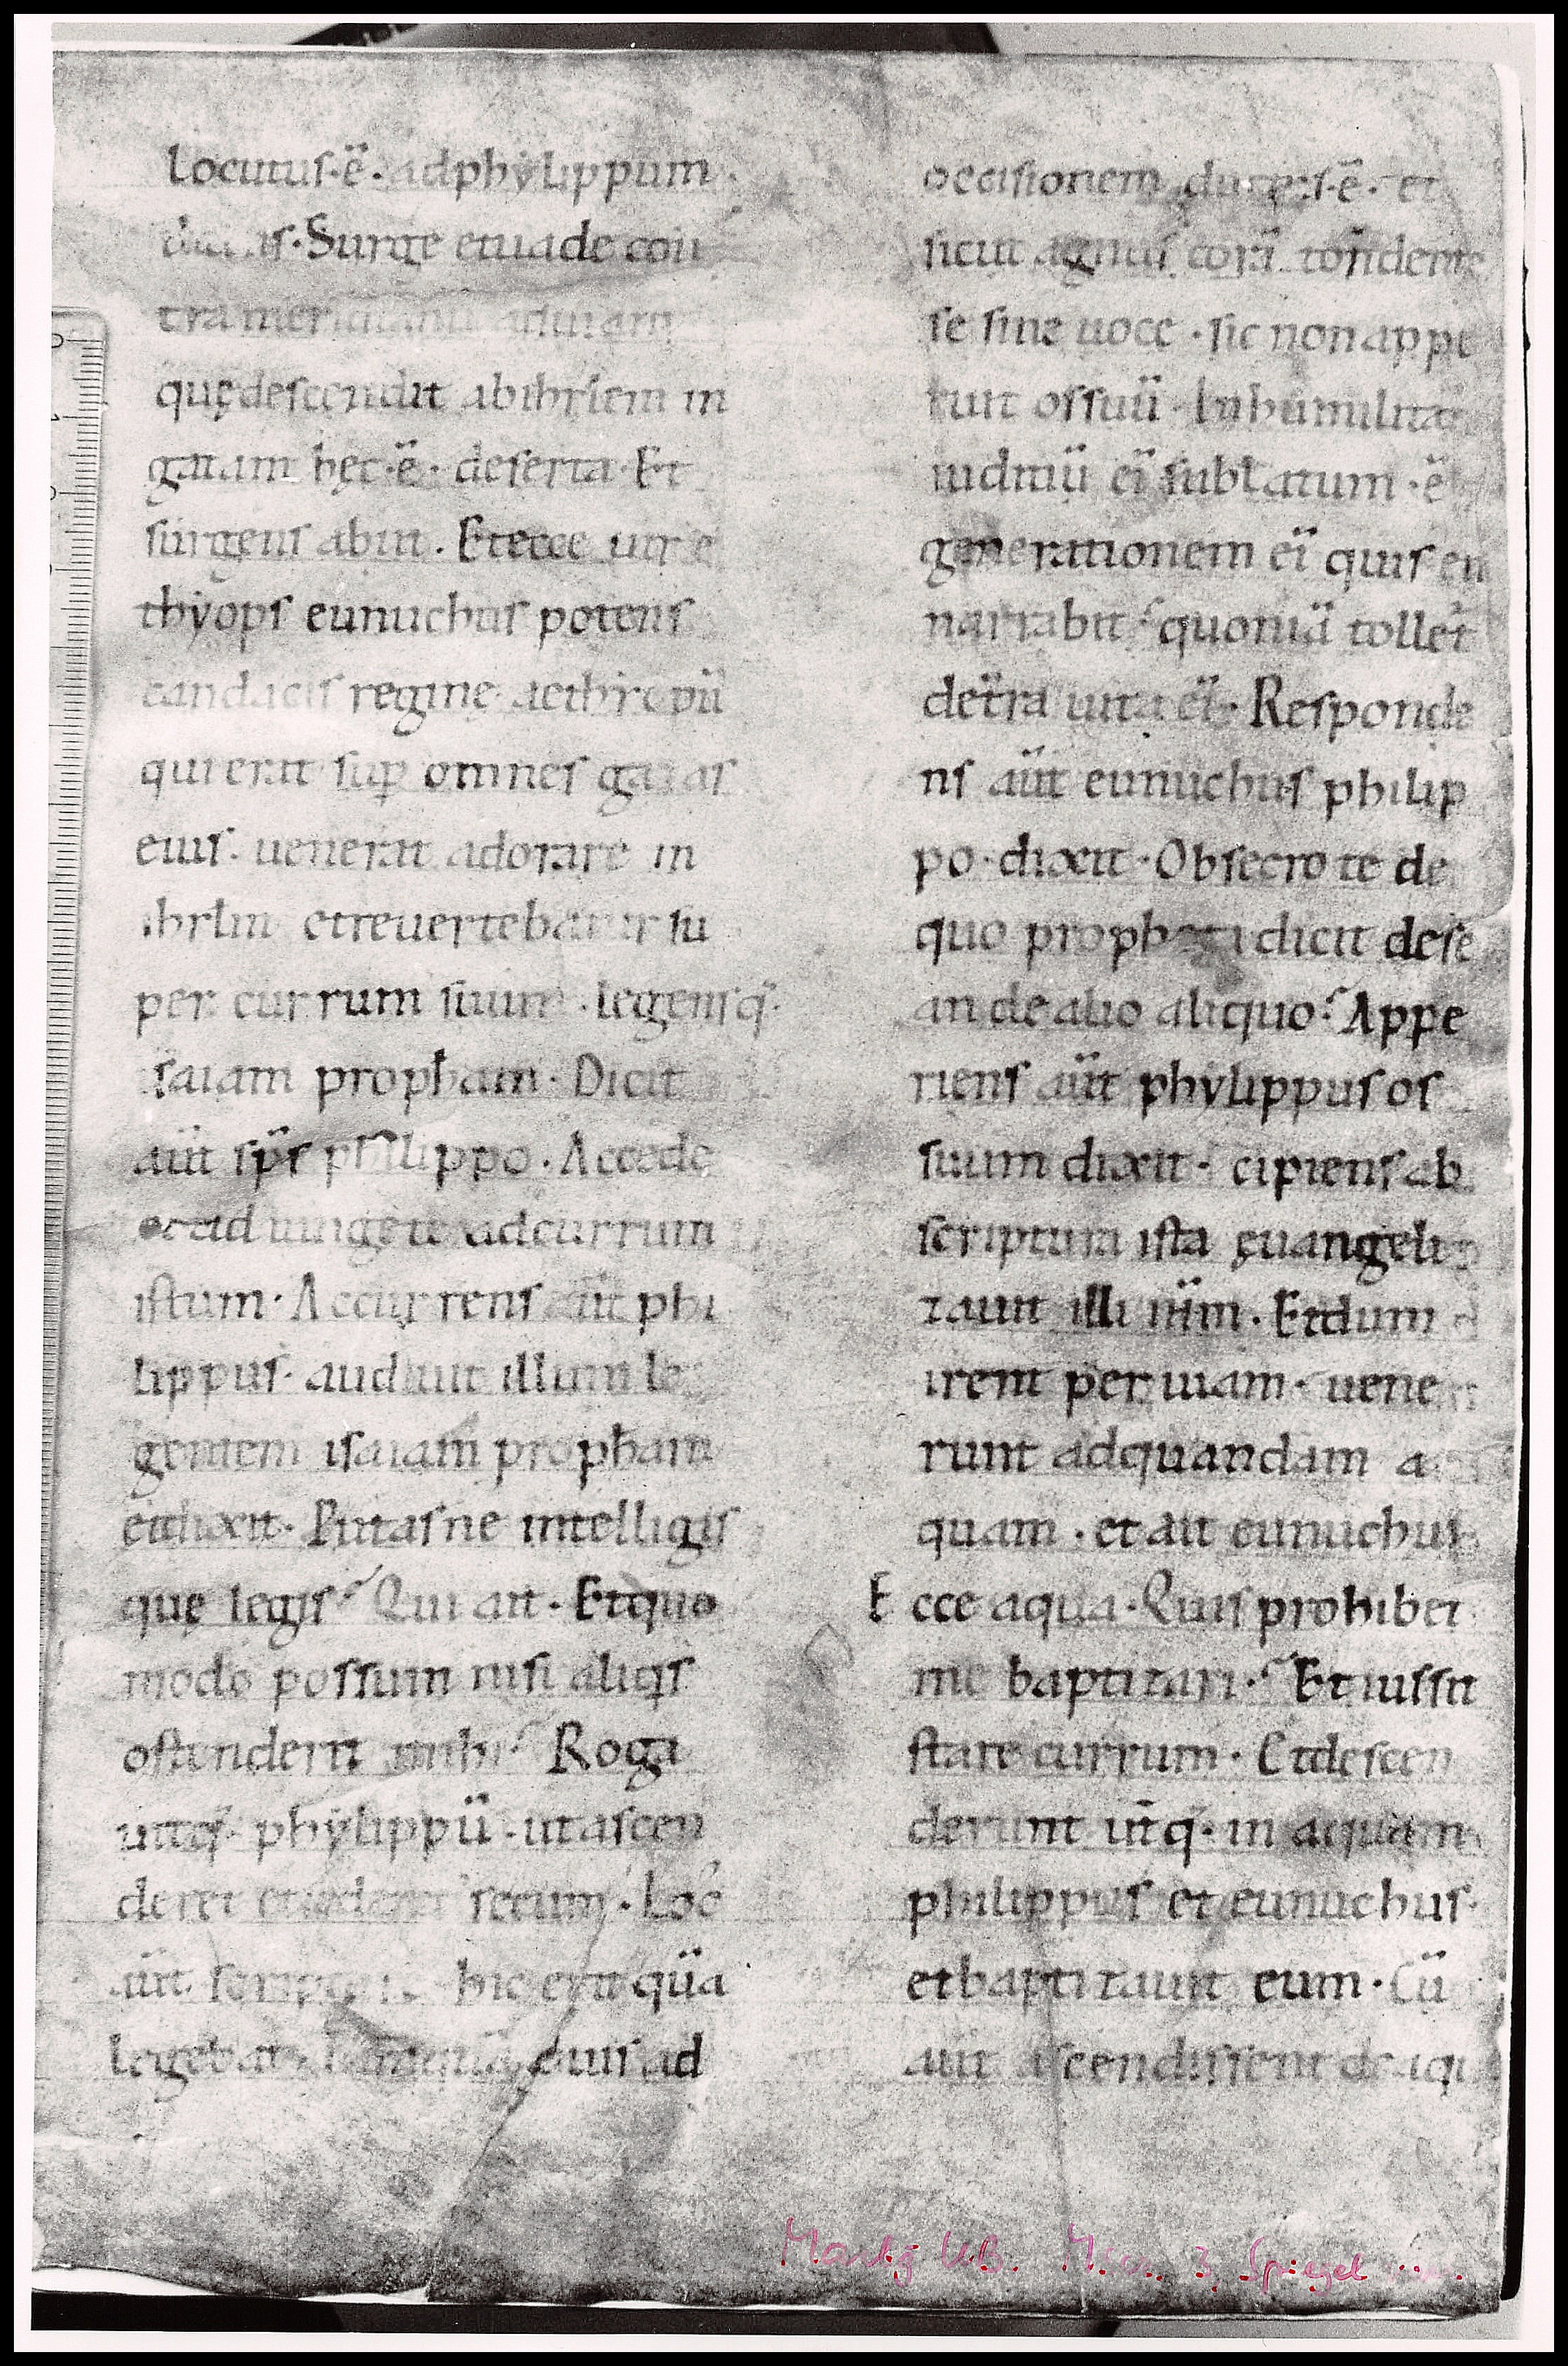 locutus·ē· adphylippum·
dicens·Surge etuade con
tra meridianū aduiam
quędescendit abihrłem in
gazam hęc·ē· deserta·Et
surgens abiit. Etecce uir e
thyops eunuchus potens
candacis regine aethiopū
qui erat sup̲ omnes gazas
eius· uenerat adorare in
ihrłm etreuertebatur su
per currum suum ·legensq·
isaiam propham· Dicit
aūt sp̄s philippo· Accede
etadiunge te adcurrum
istum· Accurrens aūt phi
lippus· audiuit illum le
gentem isaiam propham
etdixit· Putasne intelligis
quę legis? Qui ait· Etquo
modo possum nisi aliqis
ostenderit mihi? Roga
uitq· phylippū·utascen
deret etsederet secum· Loc
aūt scripturę hic erat quā
legebat· tamquā ouis ad
occisionem ductus·ē· et
sicut agnus corā tondente
se sine uoce ·sic non appe
ruit os suū· Inhumilitate
iudiciū ei sublatum ·ē
generationem ei quis en
narrabit? quoniā tollet̄
det̄ra uita ei· Responde
ns aūt eunuchus philip
po·dixit·Obsecro te de
quo propheta dicit dese
an de alio aliquo? Appe
riens aūt phylippus os
suum dixit· cipiens ab
scriptura ista ęuangeli
zauit illi iħm· Etdum
irent per uiam· uene
runt adquandam a
quam · et ait eunuchus·
Ecce aqua·Quis prohibet
me baptizari? Et iussit
stare currum· Etdescen
derunt ut̄q· in aquam
philippus et eunuchus·
etbaptizauit eum·Cū
aūt ascendissent de aqu
UB. 3 Spiegel